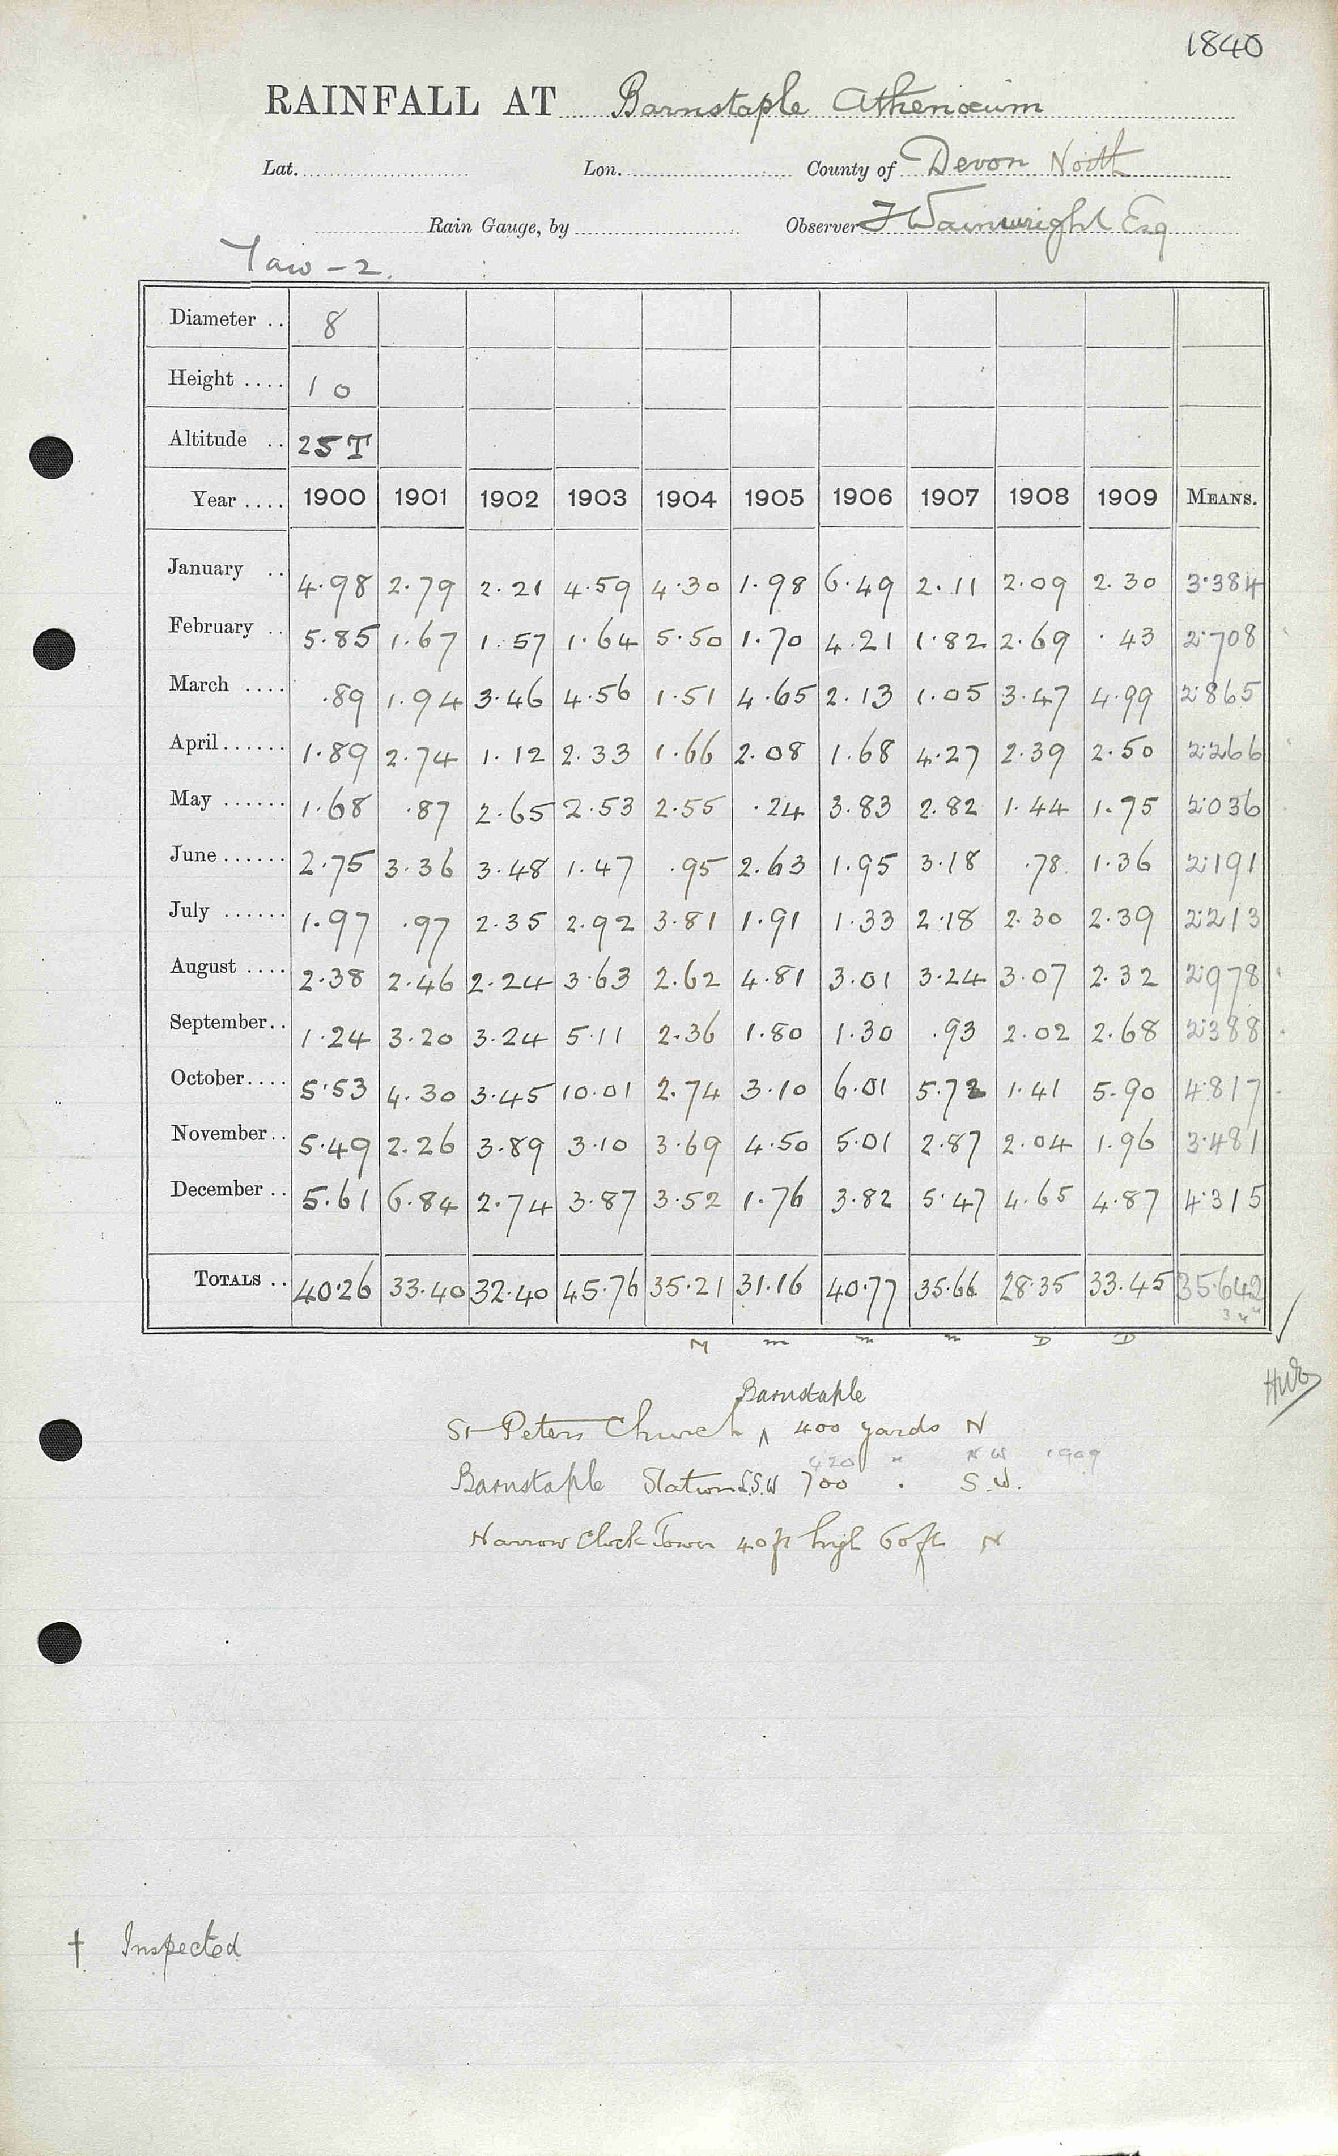 1840
RAINFALL AT Barnstaple Athenæum
Lat. Lon. County of Devon North
Rain Gauge, by Observer J Wainwright Esq
Taw - 2.
Diameter .. 8
Height .... 10
Altitude .. 25 T
Year .... 1900 1901 1902 1903 1904 1905 1906 1907 1908 1909 MEANS.
January .. 4.98 2.79 2.21 4.59 4.30 1.98 6.49 2.11 2.09 2.30 3.384
February .. 5.85 1.67 1.57 1.64 5.50 1.70 4.21 1.82 2.69 .43 2.708
March .... .89 1.94 3.46 4.56 1.51 4.65 2.13 1.05 3.47 4.99 2.865
April...... 1.89 2.74 1.12 2.33 1.66 2.08 1.68 4.27 2.39 2.50 2.266
May ...... 1.68 .87 2.65 2.53 2.55 .24 3.83 2.82 1.44 1.75 2.036
June...... 2.75 3.36 3.48 1.47 .95 2.63 1.95 3.18 .78 1.36 2.191
July ...... 1.97 .97 2.35 2.92 3.81 1.91 1.33 2.18 2.30 2.39 2.213
August .... 2.38 2.46 2.24 3.63 2.62 4.81 3.01 3.24 3.07 2.32 2.978
September.. 1.24 3.20 3.24 5.11 2.36 1.80 1.30 .93 2.02 2.68 2.388
October.... 5.53 4.30 3.45 10.01 2.74 3.10 6.01 5.72 1.41 5.90 4.817
November.. 5.49 2.26 3.89 3.10 3.69 4.50 5.01 2.87 2.04 1.96 3.481
December .. 5.61 6.84 2.74 3.87 3.52 1.76 3.82 5.47 4.65 4.87 4.315
TOTALS .. 40.26 33.40 32.40 45.76 35.21 31.16 40.77 35.66 28.35 33.45 35.642
M m m m D D
Barnstaple
St Peters Church ^ 400 yards N
420 " N W 1909
Barnstaple Station S.S.W 700 . S.W.
Narrow Clock Tower 40ft high 60ft N
† Inspected